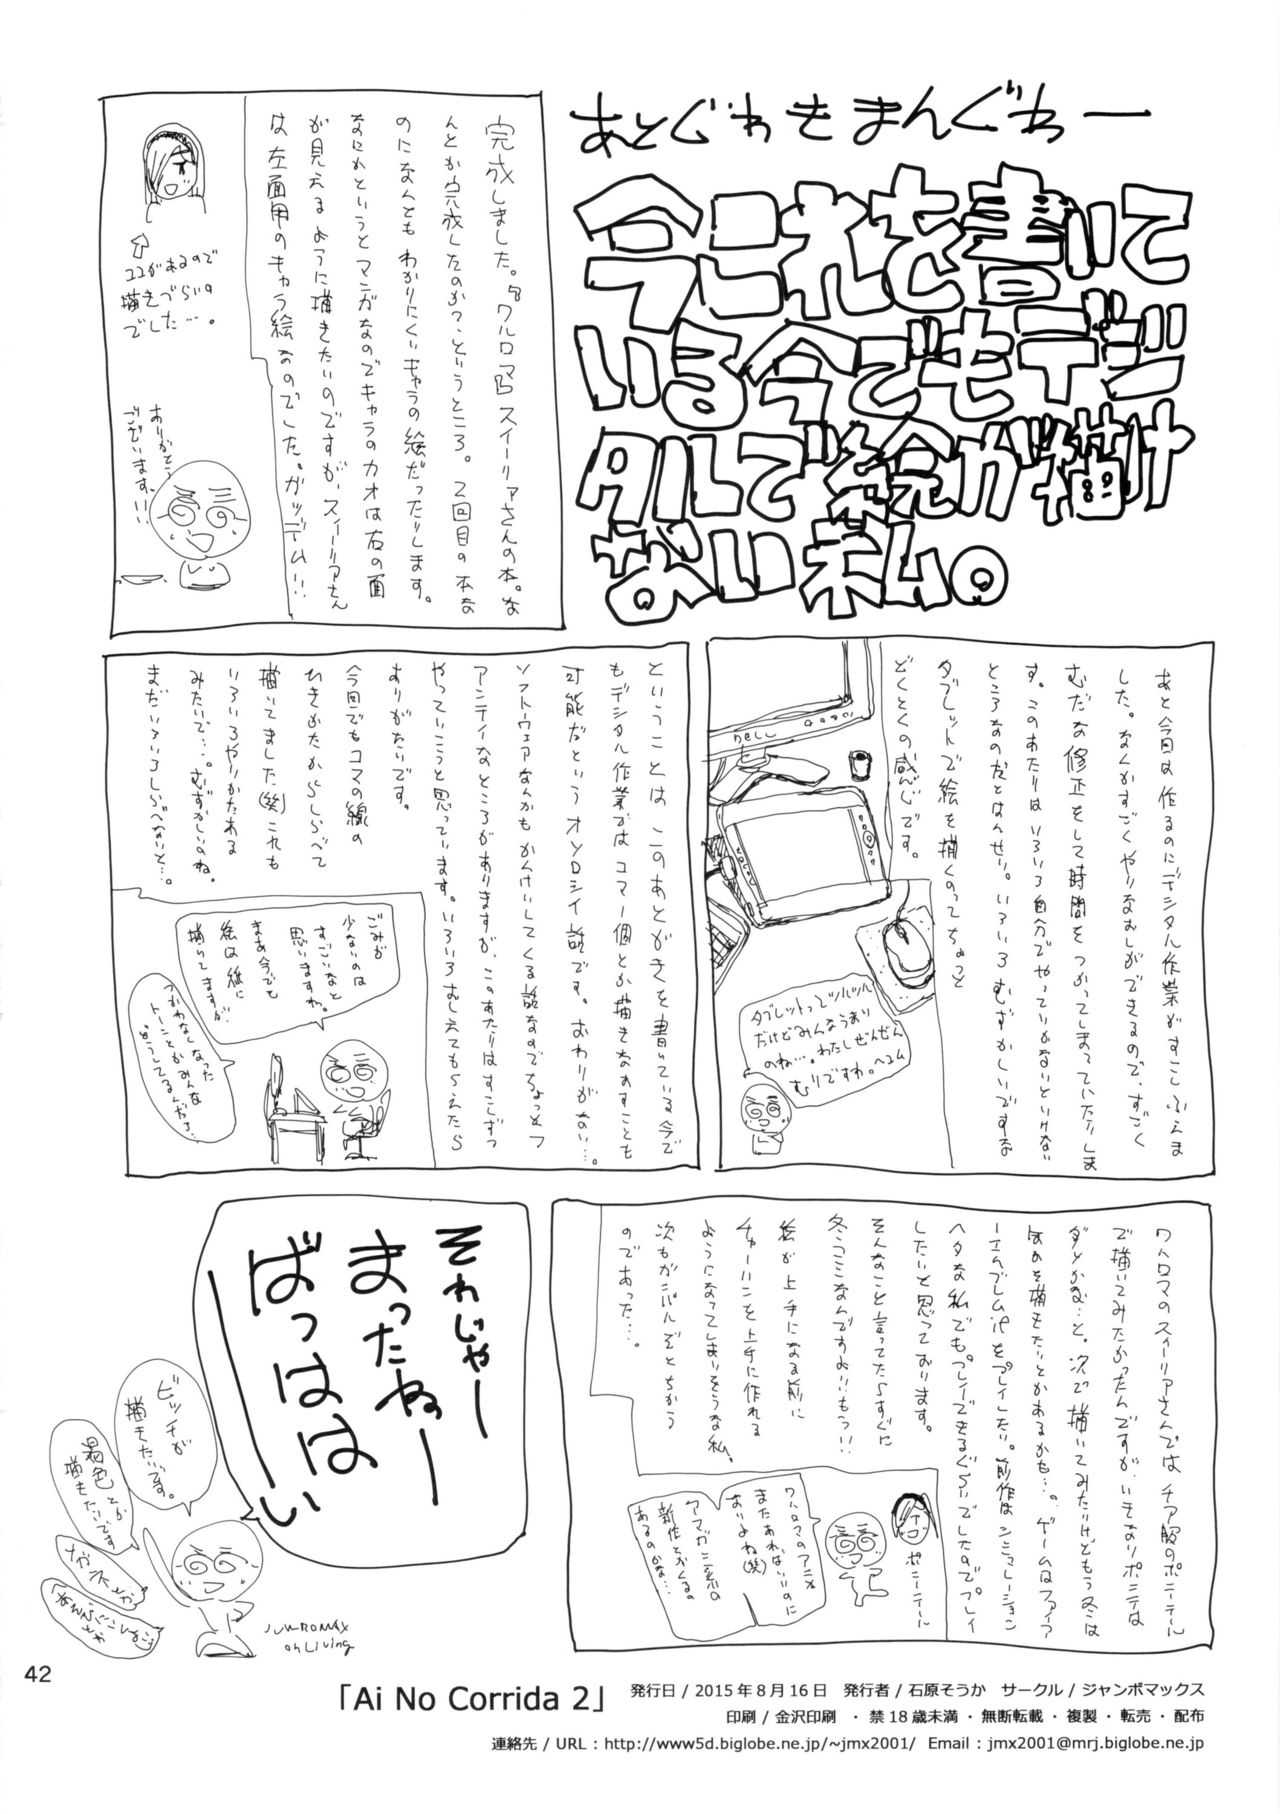 あとぐわもまんぐわー
今これを書いて
いる今でもデジ
タルで絵が描け
ない私。
完成しました。『ワルロマ』スイーリァさんの本。な
んとか完成したのか?、というところ。2回目の本な
のになんとも わかりにくいキャラの絵だったりします。
なにかというとマンガなのでキャラのカオは右の面
が見えるように描きたいのですが、スイーリァさん
は左面用のキャラ絵なのでした。ガッデーム!!
ココがあるので
描きづらいの
でした…。
ありがとう
ございます!!
あと今回は作るのにデジタル作業がすこしふえま
した。なんかすごくやりなおしができるので、すごく
むだな修正をして時間をつかってしまっていたりしま
す。このあたりはいろいろ自分でやっていかないといけない
ところなのだとはんせい。いろいろむずかしいですな
タブレットで絵を描くのってちょっと
どくとくの感じです。
DELL
タブレットってツルツル
だけどみんなうまい
のね…。わたしぜんぜん
むりですわ。ヘコム
ということは このあとがきを書いている今で
もデジタル作業ではコマ一個とか描きなおすことも
可能だというオソロシイ話です。おわりがない…。
ソフトウェアなんかもかんけいしてくる話なのでちょっとフ
アンティなところがありますが、このあたりはすこしずつ
やっていこうと思っています。いろいろおしえてもらえたら
ありがたいです。
今回でもコマの線の
ひきかたからしらべて
描いてました(笑)これも
いろいろやりかたある
みたいで…。むずかしいのね。
まだいろいろしらべないと…。
ごみが
少ないのは
すごいなと
思いますね。
まあ今でも
絵は紙に
描いてますが
つかわなくなった
トーンとかみんな
どうしてるんだろ…
ワルロマのスイーリァさんではチア服のポニーテール
で描いてみたかったんですが、いきなりポニテは
ダメかな…と。次で描いてみたいけどもう冬は
ーエムブレムifをプレイしたい。前作はシミュレーション
ヘタな私でもプレイできるぐらいでしたのでプレイ
したいと思っております。
そんなこと言ってたらすぐに
冬コミなんですよ!!もう!!
絵が上手になる前に
チャーハンを上手に作れる
ようになってしまいそうな私。
次もガンバルぞとちかう
のであった…。
ポニーテール
ワルロマのアニメ
またあればいいのに
おりよね(笑)
アマガミ系の
新作とかくるの
あるのかな…
それじゃー
まったねー
ばっははーい
ビッチが
描きたいです。
褐色とか
描きたいです
メガネとか
JUMBOMAX
on Living
42
「Ai No Corrida 2」
発行日 / 2015年8月16日 発行者 / 石原そうか サークル / ジャンボマックス
印刷 / 金沢印刷 ・禁18歳未満・無断転載・複製・転売・配布
連絡先 / URL : http://www5d.biglobe.ne.jp/~jmx2001/ Email : jmx2001@mrj.biglobe.ne.jp